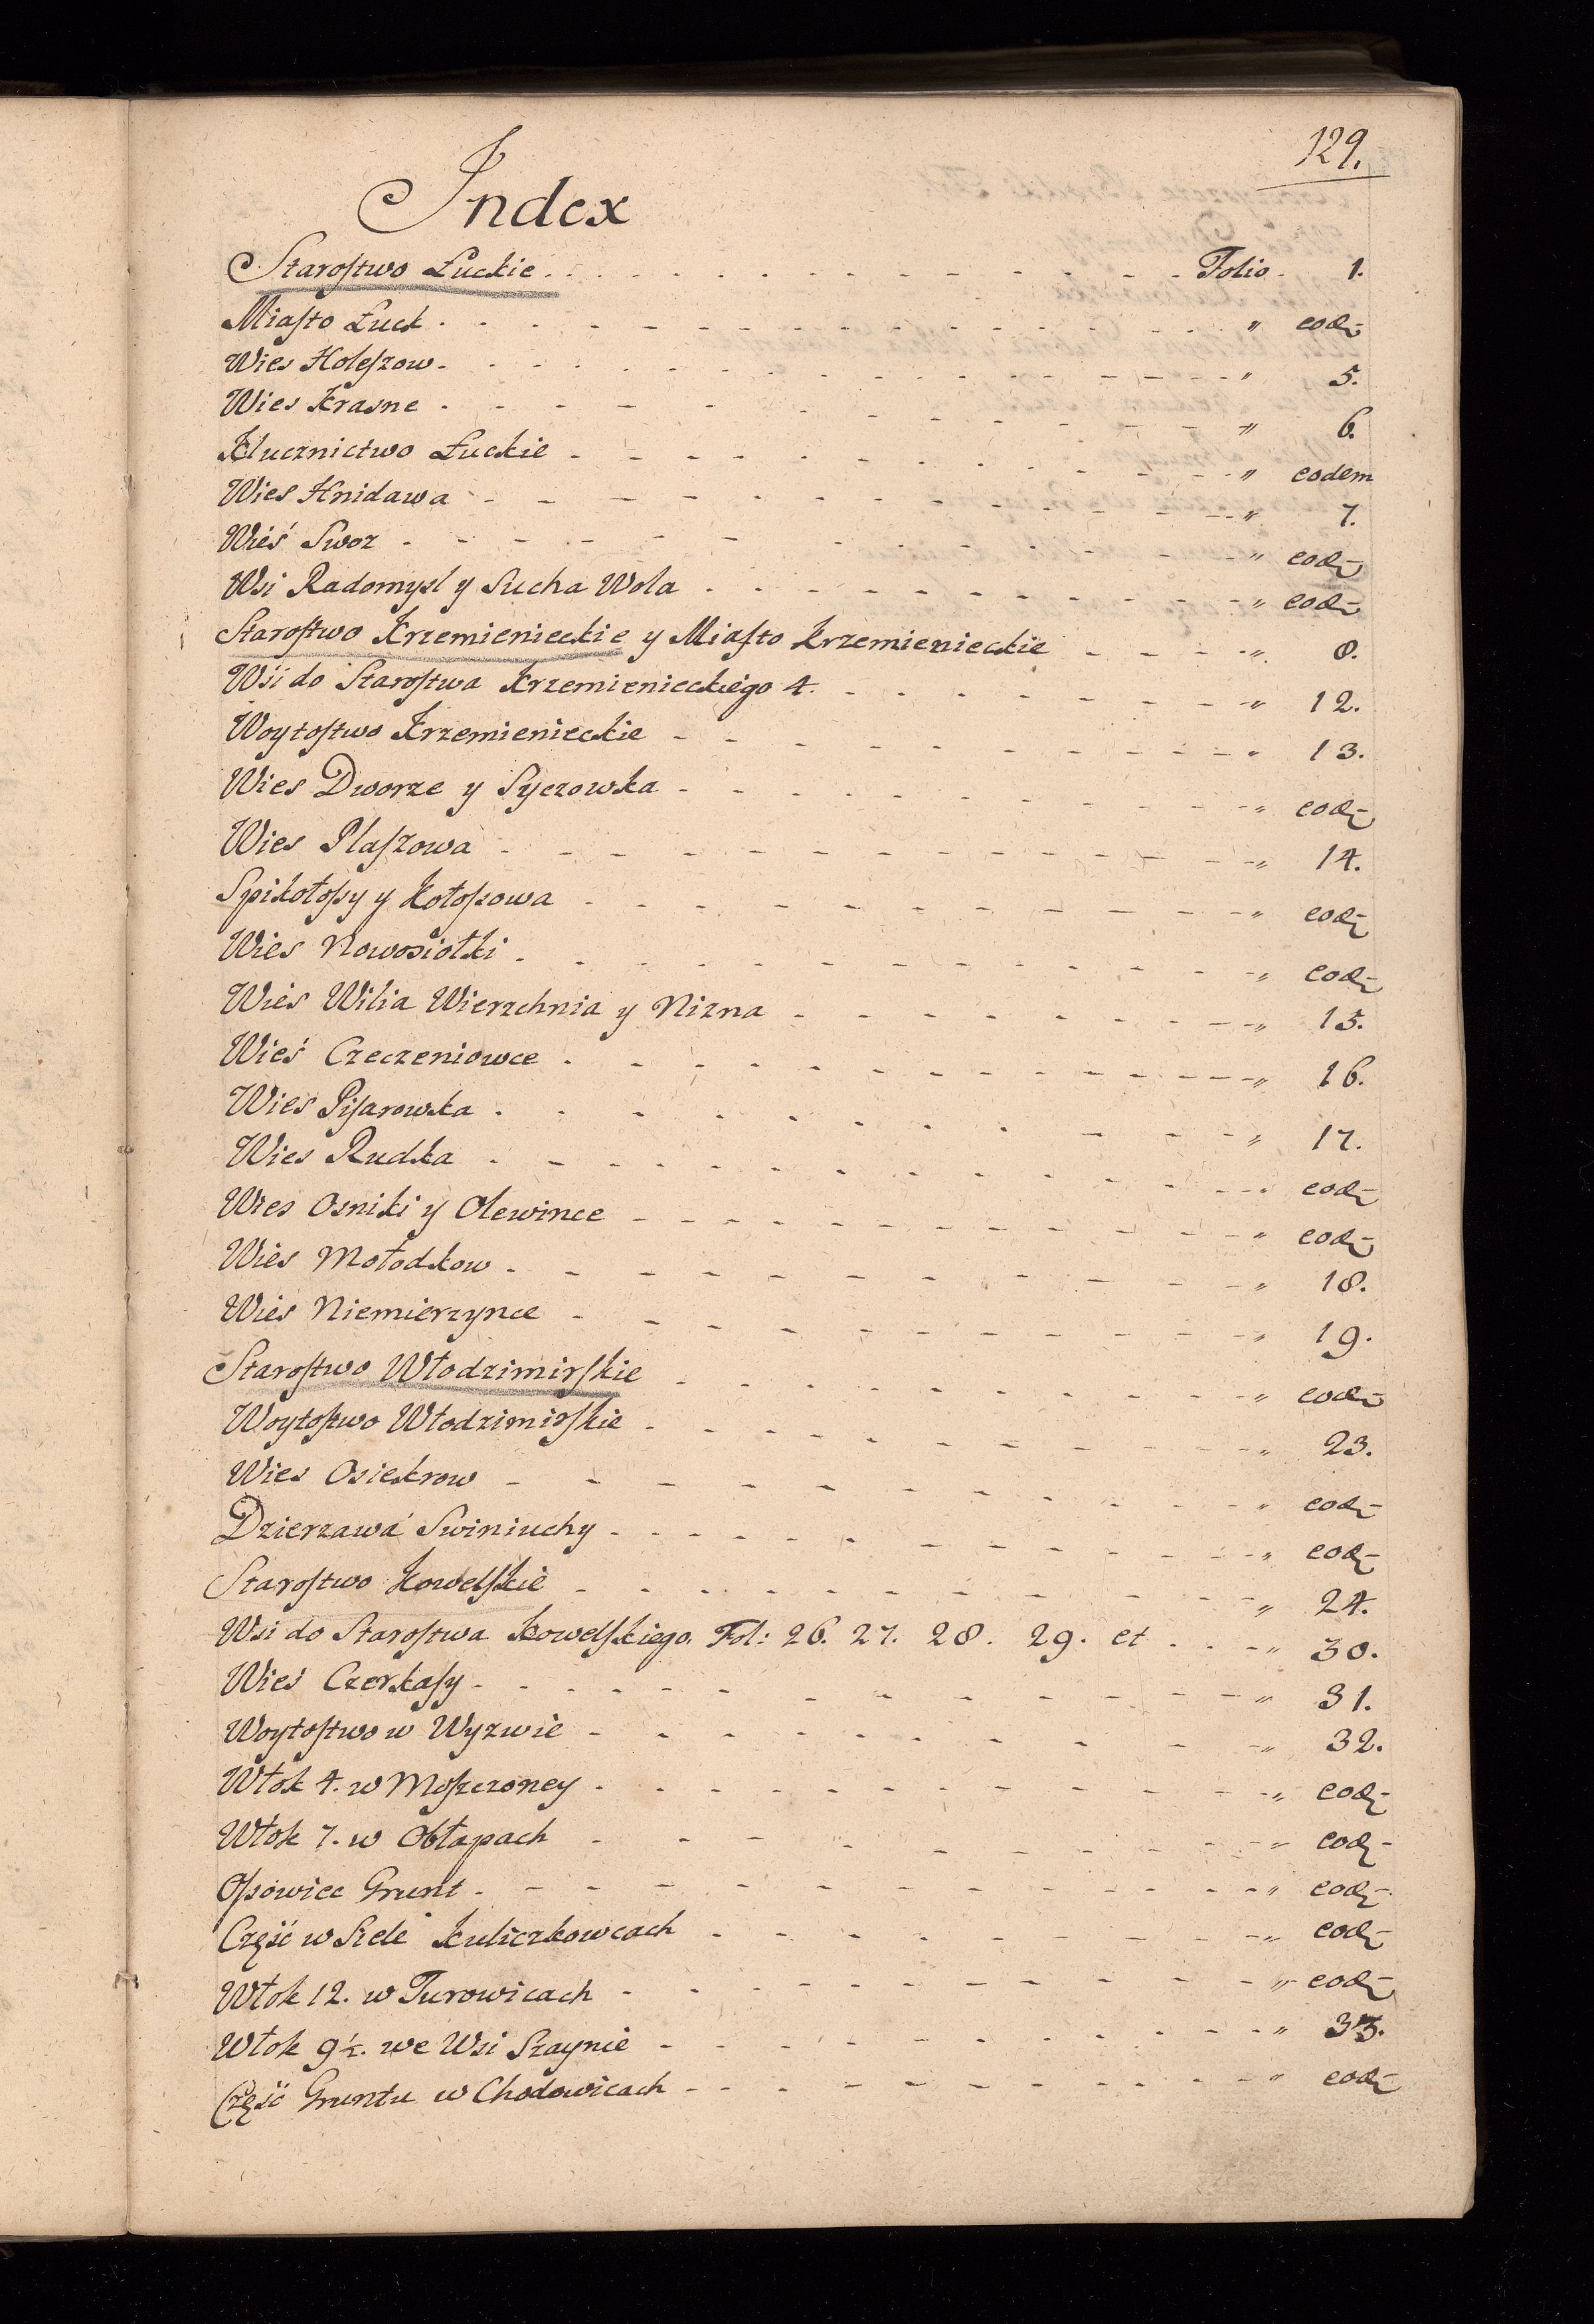 129.
Index
Starostwo Łuckie . . . . . . . . . . Folio . 1.
Miasto Łuck . . . . . . . . . . " eod̄
Wies Holeszow . . . . . . . . . . " 5.
Wies Krasne . . . . . . . . . . " 6.
Klucznictwo Łuckie . . . . . . . . . . " eodem
Wies Hnidawa . . . . . . . . . . " 7.
Wieś Swoz . . . . . . . . . . " eod̄
Wsi Radomysl y Sucha Wola . . . . . . . . . . " eod̄
Starostwo Krzemienieckie y Miasto Krzemienieckie . . . . " 8.
Wsi do Starostwa Krzemienieckiego 4. . . . . . . . " 12.
Woytostwo Krzemienieckie . . . . . . . . . . " 13.
Wies Dworze y Syczowka . . . . . . . . . . " eod̄
Wies Plaszowa . . . . . . . . . . " 14.
Spikołosy y Kołosowa . . . . . . . . . . " eod̄
Wies Nowosiołki . . . . . . . . . . " eod̄
Wieś Wilia Wierzchnia y Nizna . . . . . . . . " 15.
Wieś Czeczeniowce . . . . . . . . . . " 16.
Wies Pisarowka . . . . . . . . . . " 17.
Wies Rudka . . . . . . . . . . " eod̄
Wies Osniki y Olewince . . . . . . . . . . " eod̄
Wies Mołodkow . . . . . . . . . . " 18.
Wies Niemierzynce . . . . . . . . . . " 19.
Starostwo Włodzimirskie . . . . . . . . . . " eod̄
Woytostwo Włodzimirskie . . . . . . . . . . " 23.
Wies Osiekrow . . . . . . . . . . " eod̄
Dzierzawa Swiniuchy . . . . . . . . . . " eod̄
Starostwo Kowelskie . . . . . . . . . . " 24.
Wsi do Starostwa Kowelskiego. Fol: 26. 27. 28. 29. et . . . " 30.
Wieś Czerkasy . . . . . . . . . . " 31.
Woytostwo w Wyzwie . . . . . . . . . . " 32.
Włok 4. w Moszczoney . . . . . . . . . . " eod̄
Włok 7. w Obłapach . . . . . . . . . . " eod̄
Osowiec Grunt . . . . . . . . . . " eod̄
Część w Siele Kuliczkowcach . . . . . . . . . . " eod̄
Włok 12. w Turowicach . . . . . . . . . . " eod̄
Włok 9½. we Wsi Szaynie . . . . . . . . . . " 33.
Część Gruntu w Chodowicach . . . . . . . . . . " eod̄